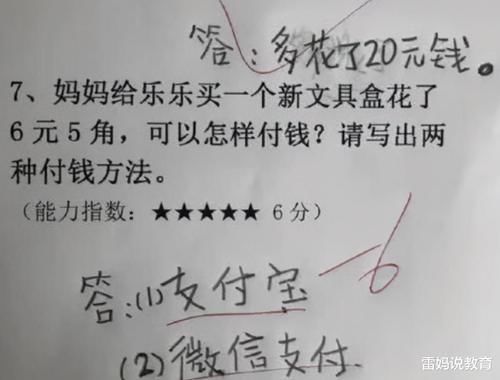 答：多花了20元钱。
7、妈妈给乐乐买一个新文具盒花了
6元5角，可以怎样付钱？请写出两
种付钱方法。
（能力指数：★★★★★ 6分）
答：(1)支付宝
-6
(2)微信支付.
雷妈说教育